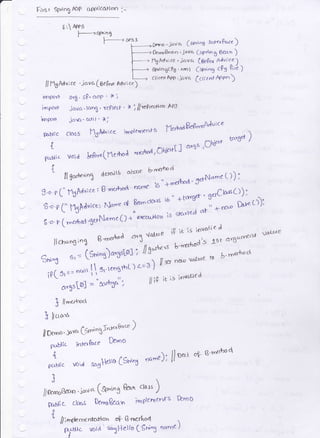 First Spring AOP application :-
E:\ Apps
spring
DES1
Demo.java (Spring Interface)
DemoBean.java (Spring Bean)
MyAdvice.java (Before Advice)
SpringCfg.xml (Spring cfg file)
ClientApp.java (client Appn)
//MyAdvice.java (Before Advice)
import org.sf.aop.*;
import java.lang.reflect.*; //reflection API
import java.util.*;
public class MyAdvice implements MethodBeforeAdvice
{
public void before(Method method, Object[] args, Object target)
{
//gathering details above b-method
S.o.p("MyAdvice: B-method name is"+method.getName());
S.o.p("MyAdvice: Name of Bean class is"+target.getClass());
S.o.p(method.getName()+"execution is started at"+new Date());
//changing B-method arg value if it is invalid
String s1=(String)args[0]; //gathers b-method's 1st argument value
if(s1==null || s1.length()<=3) //set new value to b-method
args[0]="surya"; //if it is invalid
} //method
} //class
//Demo.java (Spring Interface)
public interface Demo
{
public void sayHello(String name); //Decl of B-method
}
//DemoBean.java (Spring Bean class)
public class DemoBean implements Demo
{
//implementation of B-method
public void sayHello(String name)